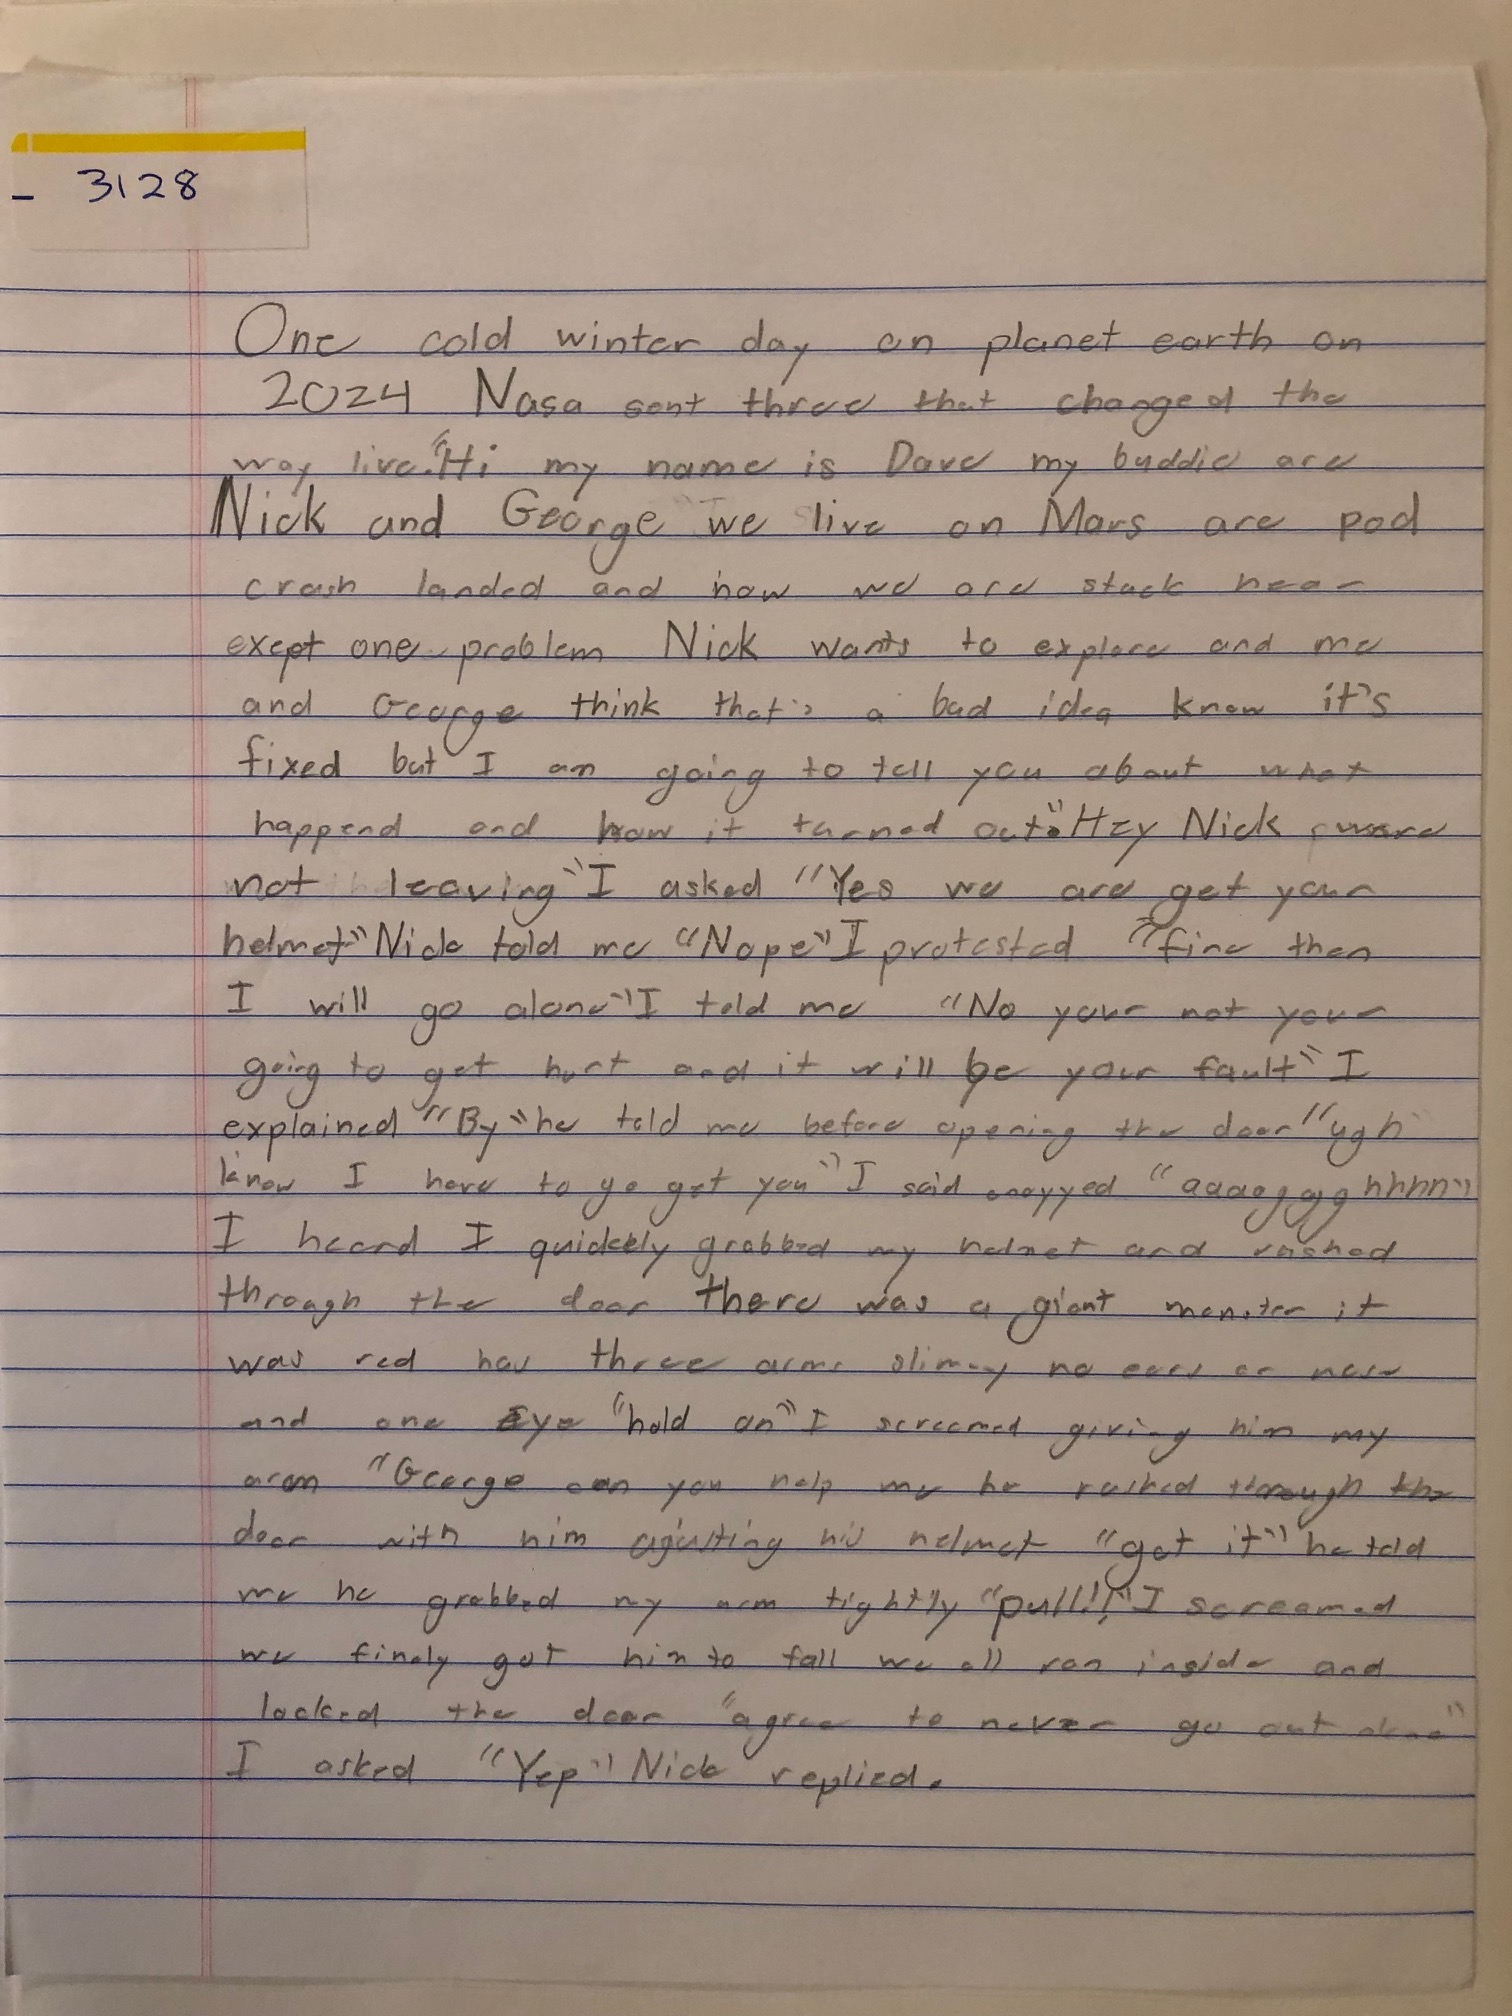 - 3128
One cold winter day on planet earth on
2024 Nasa sent three that changed the
way live. "Hi my name is Dave my buddie are
Nick and George we live on Mars are pod
crash landed and now we are stuck hear
exept one problem Nick wants to explore and me
and George think that's a bad idea know it's
fixed but I am going to tell you about what
happend and how it turned out." Hey Nick
not leaving" I asked "Yes we are get your
helmet" Nick told me "Nope" I protested "fine then
I will go alone" I told me "No your not your
going to get hurt and it will be your fault" I
explained "By" he told me before opening the door "ugh
know I have to go get you" I said anoyyed "aaaagggghhhh"
I heard I quickely grabbed my helmet and rushed
through the door there was a giant monster it
was red has three arms slimey no ears or nose
and one Eye "hold on" I screamed giving him my
arm "George can you help me he rushed through the
door with him ajusting his helmet "got it" he told
me he grabbed my arm tightly "pull!!" I screamed
we finely got him to fall we all ran inside and
locked the door "agree to never go out alone"
I asked "Yep" Nick replied.